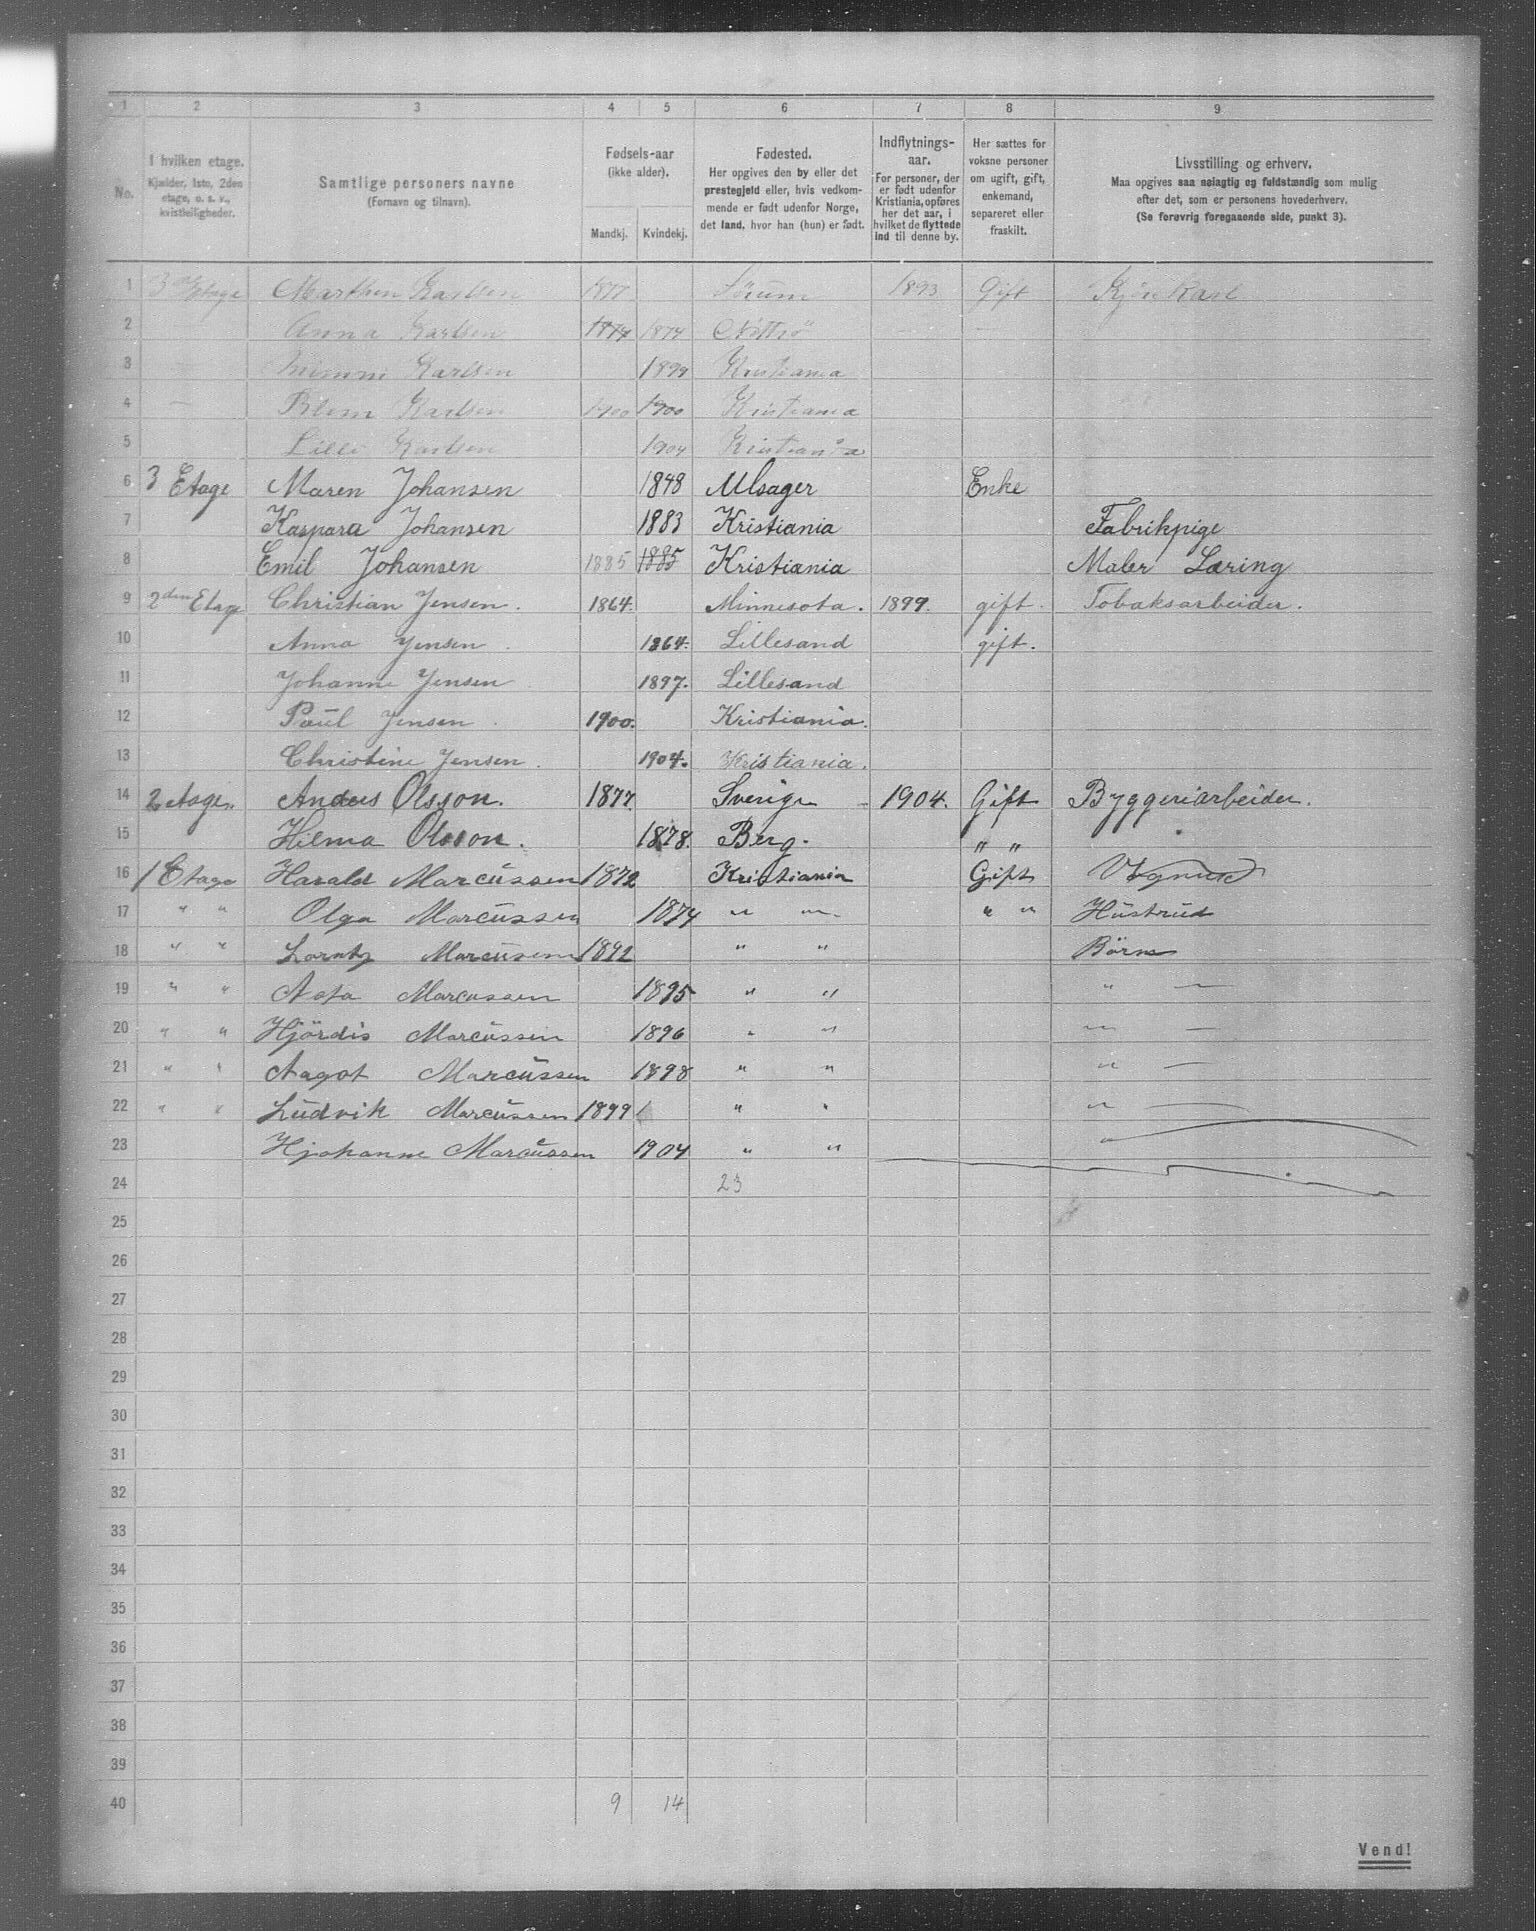 1 2 3 4 5 6 7 8 9
No.
I hvilken etage.
Kjælder, 1ste, 2den
etage, o. s. v.,
kvistleiligheder.
Samtlige personers navne
(Fornavn og tilnavn).
Fødsels-aar
(ikke alder).
Mandkj. Kvindekj.
Fødested.
Her opgives den by eller det
prestegjeld eller, hvis vedkom-
mende er født udenfor Norge,
det land, hvor han (hun) er født.
Indflytnings-
aar.
For personer, der
er født udenfor
Kristiania, opføres
her det aar, i
hvilket de flyttede
ind til denne by.
Her sættes for
voksne personer
om ugift, gift,
enkemand,
separeret eller
fraskilt.
Livsstilling og erhverv.
Maa opgives saa nøiagtig og fuldstændig som mulig
efter det, som er personens hovederhverv.
(Se forøvrig foregaaende side, punkt 3).
1 3 Etage Marthin Karlsen 1877 Sörum 1893 Gift
2 Anna Karlsen 1874 1874
3 Karlsen 1899 Kristiania
4 Karlsen 1900 1900 Kristiania
5 Lilli Karlsen 1904 Kristiania
6 3 Etage Maren Johansen 1848 Ulsager Enke
7 Kaspara Johansen 1883 Kristiania Fabrikpige
8 Emil Johansen 1885 1885 Kristiania Maler Læring
9 2den Etage Christian Jensen. 1864. Minnesota. 1899. gift. Tobaksarbeider.
10 Anna Jensen. 1864. Lillesand gift.
11 Johanne Jensen 1897. Lillesand
12 Paul Jensen. 1900. Kristiania.
13 Christine Jensen. 1904. Kristiania.
14 2 Etage. Anders Olsson. 1877. Sverige 1904. Gift Byggeriarbeider.
15 Hilma Olsson. 1878. Berg. " "
16 1 Etage Harald Marcussen 1872 Kristiania Gift
17 " " Olga Marcussen 1874 " " " " Hustrud
18 " " Lorntz Marcussen 1892 " " Börn
19 " " Asta Marcussen 1895 " " " —
20 " " Hjördis Marcussen 1896 " " " —
21 " " Aagot Marcussen 1898 " " " —
22 " " Ludvik Marcussen 1899 " " " —
23 Hjohanne Marcussen 1904 " " "
24 23
25
26
27
28
29
30
31
32
33
34
35
36
37
38
39
40 9 14
Vend!